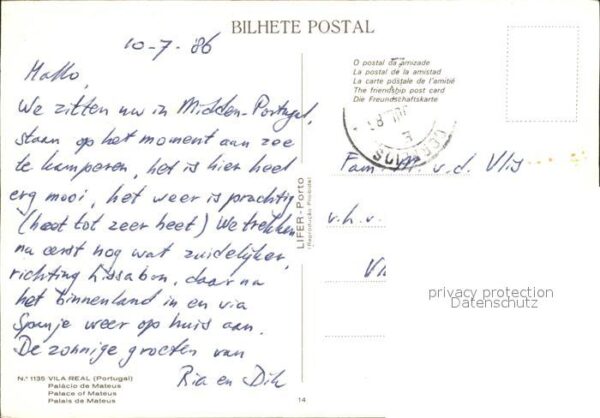 BILHETE POSTAL
10-7-'86
Hallo,
We zitten nu in Midden-Portugal,
staan op het moment aan zee
te kamperen, het is hier heel
erg mooi, het weer is prachtig
(heet tot zeer heet) We trekken
na eerst nog wat zuidelijker,
richting Lissabon, daarna
het binnenland in en via
Spanje weer op huis aan.
De zonnige groeten van
Ria en Dik
N.º 1135 VILA REAL (Portugal)
Palácio de Mateus
Palace of Mateus
Palais de Mateus
14
LIFER-Porto
(Reprodução Proibida)
O postal da amizade
La postal de la amistad
La carte postale de l'amitié
The friendship post card
Die Freundschaftskarte
Fam. v.d. Vlis
v.h.v.
privacy protection
Datenschutz